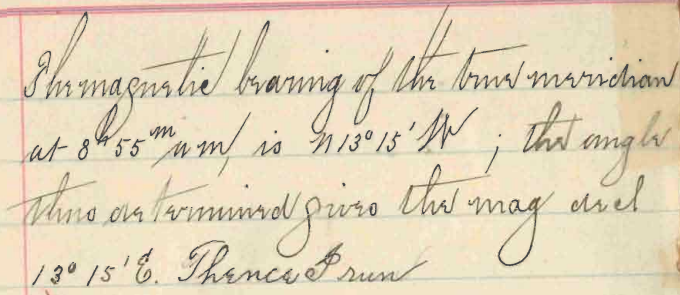 The magnetic bearing of the true meridian
at 8ʰ55ᵐ a m, is N 13° 15' W ; the angle
thus determined gives the mag decl
13° 15' E. Thence I run